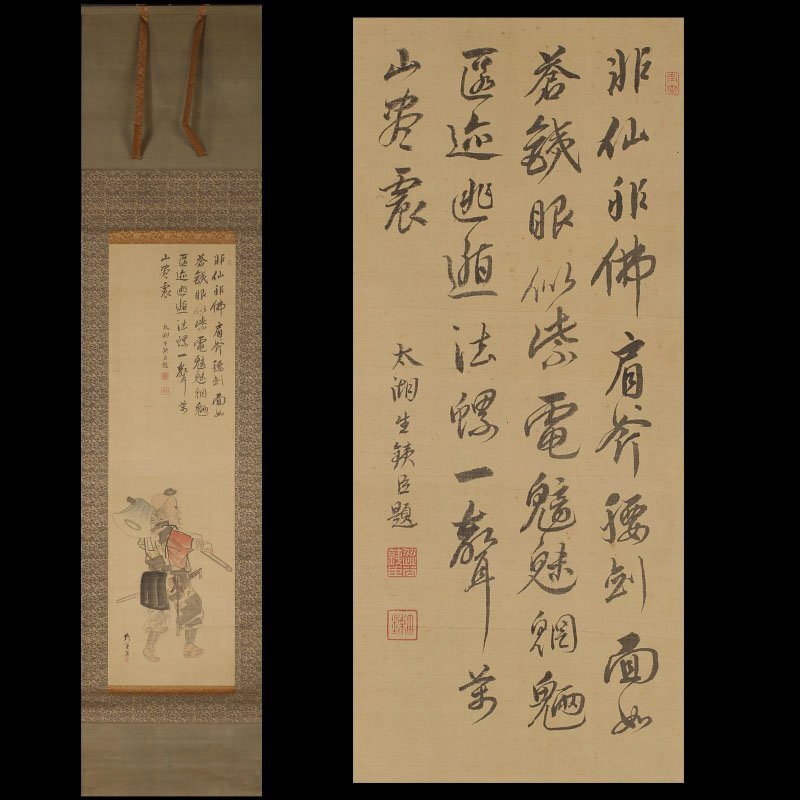 非仙非佛肩斧腰剑面如
蒼鐵眼似紫電魑魅魍魎
匿迹逃遁法螺一聲萬
山岑震
太湖生鐵臣題